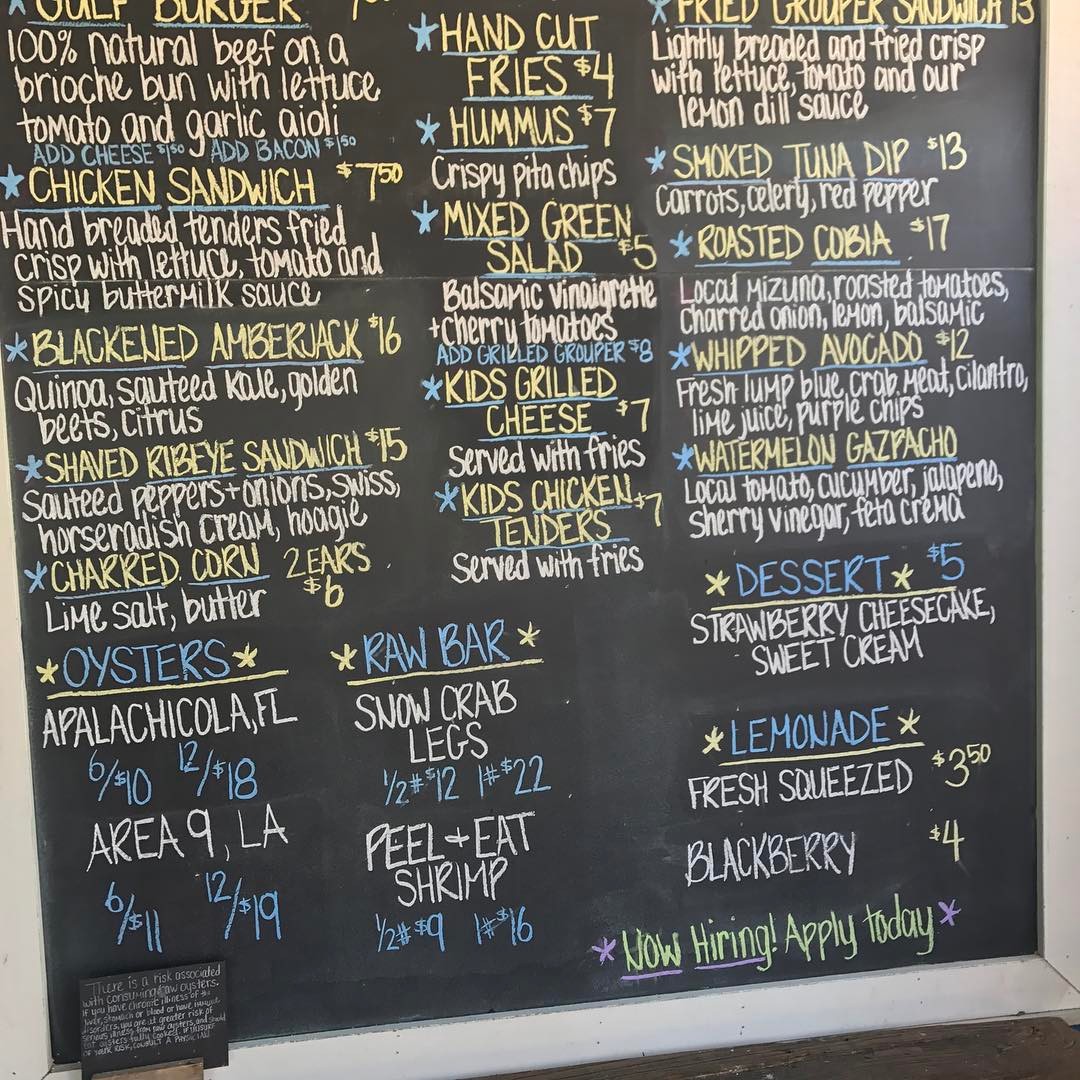 * GULF BURGER
100% natural beef on a
brioche bun with lettuce
tomato and garlic aioli
ADD CHEESE $1.50 ADD BACON $1.50
* CHICKEN SANDWICH $7.50
Hand breaded tenders fried
crisp with lettuce, tomato and
spicy buttermilk sauce
* BLACKENED AMBERJACK $16
Quinoa, sauteed kale, golden
beets, citrus
* SHAVED RIBEYE SANDWICH $15
Sauteed peppers + onions, swiss,
horseradish cream, hoagie
* CHARRED CORN 2 EARS
$6
Lime salt, butter
* HAND CUT
FRIES $4
* HUMMUS $7
Crispy pita chips
* MIXED GREEN
SALAD $5
Balsamic vinaigrette
+ cherry tomatoes
ADD GRILLED GROUPER $8
* KIDS GRILLED
CHEESE $7
Served with fries
* KIDS CHICKEN $7
TENDERS
Served with fries
* FRIED GROUPER SANDWICH 13
Lightly breaded and fried crisp
with lettuce, tomato and our
lemon dill sauce
* SMOKED TUNA DIP $13
Carrots, celery, red pepper
* ROASTED COBIA $17
Local mizuna, roasted tomatoes,
charred onion, lemon, balsamic
* WHIPPED AVOCADO $12
Fresh lump blue crab meat, cilantro,
lime juice, purple chips
* WATERMELON GAZPACHO
Local tomato, cucumber, jalapeno,
sherry vinegar, feta crema
* DESSERT * $5
STRAWBERRY CHEESECAKE,
SWEET CREAM
* OYSTERS *
APALACHICOLA, FL
6/$10 12/$18
AREA 9, LA
6/$11 12/$19
* RAW BAR *
SNOW CRAB
LEGS
1/2# $12 1# $22
PEEL + EAT
SHRIMP
1/2# $9 1# $16
* LEMONADE *
FRESH SQUEEZED $3.50
BLACKBERRY $4
* Now Hiring! Apply today *
There is a risk associated
with consuming raw oysters.
If you have chronic illness of the
liver, stomach or blood or have immune
disorders, you are at greater risk of
serious illness from raw oysters, and should
eat oysters fully cooked. If unsure
of your risk, consult a physician